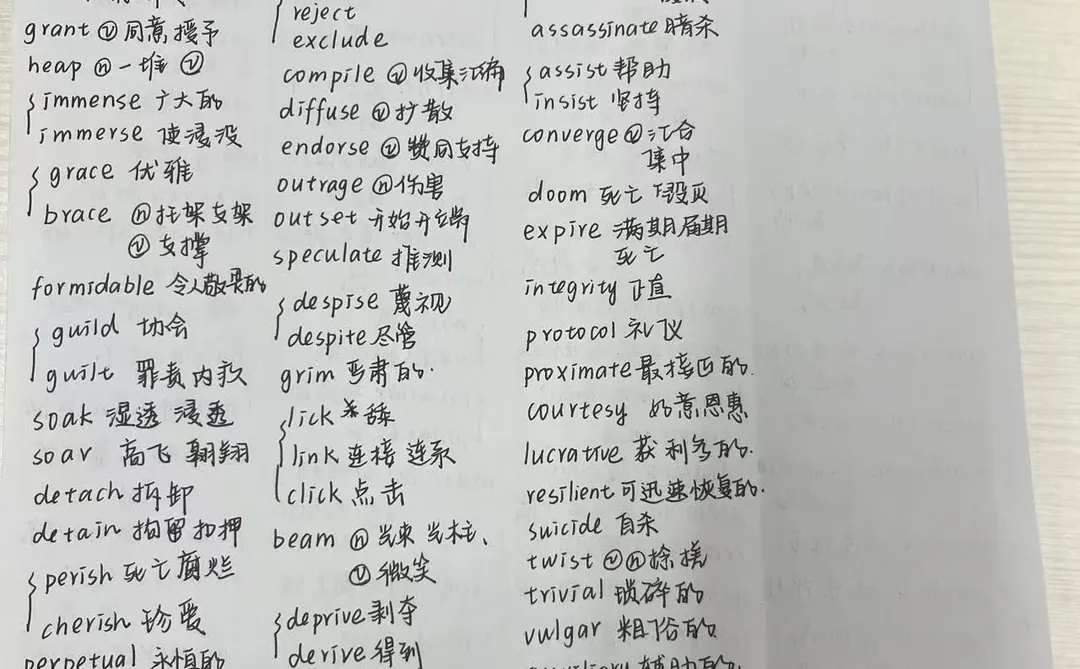 grant ⓥ同意授予
heap ⓝ一堆 ⓥ
immense 广大的
immerse 使浸没
grace 优雅
brace ⓝ托架支架
ⓥ支撑
formidable 令人敬畏的
guild 协会
guilt 罪责内疚
soak 湿透 浸透
soar 高飞 翱翔
detach 拆卸
detain 拘留扣押
perish 死亡腐烂
cherish 珍爱
perpetual 永恒的
reject
exclude
compile ⓥ收集汇编
diffuse ⓥ扩散
endorse ⓥ赞同支持
outrage ⓝ伤害
outset 开始开端
speculate 推测
despise 蔑视
despite 尽管
grim 严肃的.
lick
link 连接 连系
click 点击
beam ⓝ光束 光柱、
ⓥ微笑
deprive 剥夺
derive 得到
assassinate 暗杀
assist 帮助
insist 坚持
converge ⓥ汇合
集中
doom 死亡 毁灭
expire 满期届期
死亡
integrity 正直
protocol 礼仪
proximate 最接近的.
courtesy 好意恩惠
lucrative 获利多的.
resilient 可迅速恢复的.
suicide 自杀
twist ⓥⓝ捻搓
trivial 琐碎的
vulgar 粗俗的